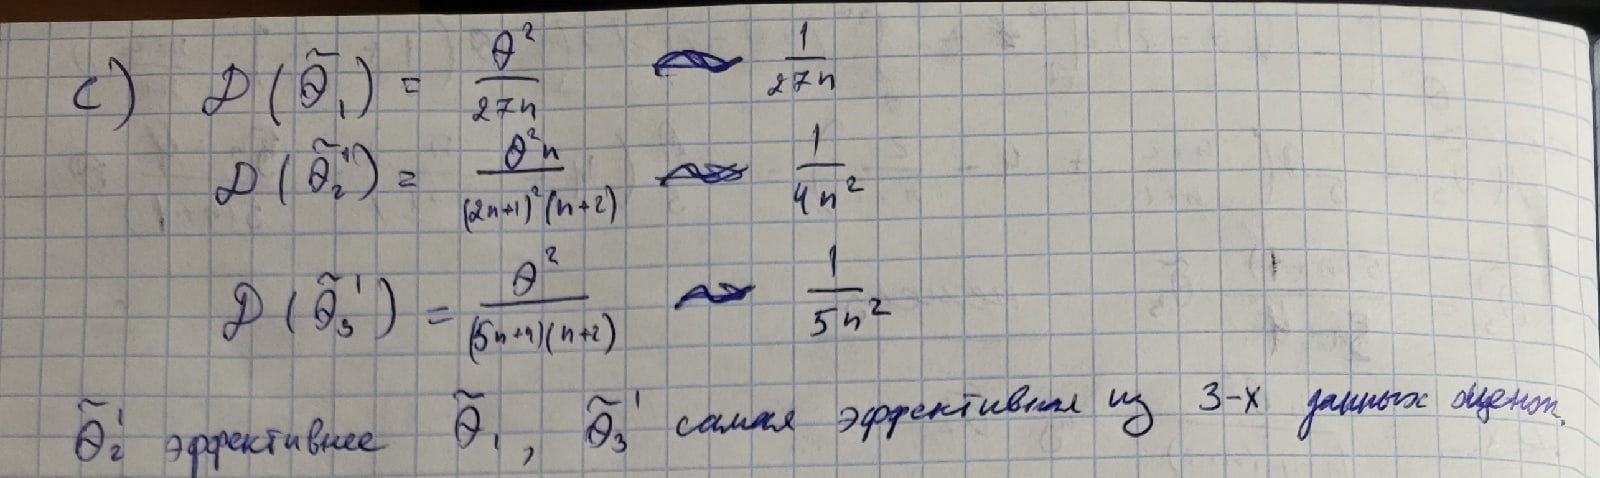 c) D(θ̃₁) = θ²/27n ~ 1/27n
D(θ̃₂') = θ²n/(2n+1)²(n+2) ~ 1/4n²
D(θ̃₃') = θ²/(5n+4)(n+2) ~ 1/5n²
θ̃₂' эффективнее θ̃₁, θ̃₃' самая эффективная из 3-х данных оценок.